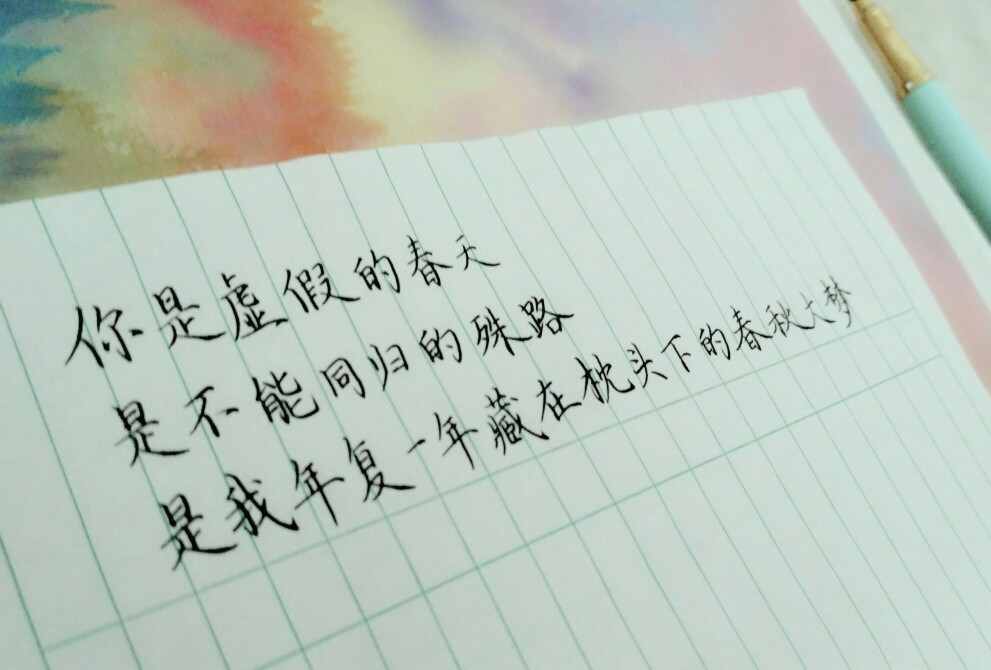 你是虚假的春天
是不能同归的殊路
是我年复一年藏在枕头下的春秋大梦